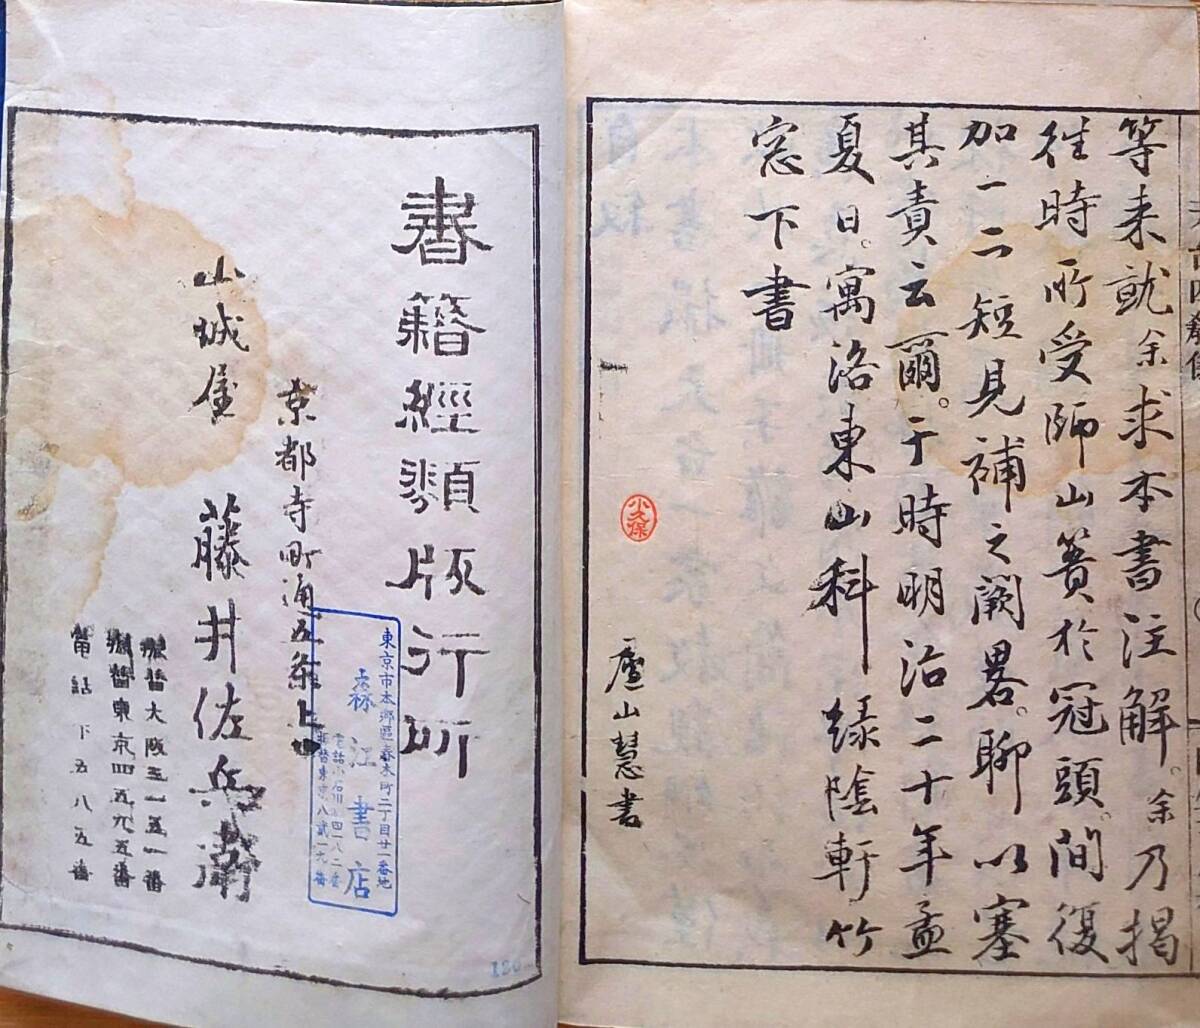 等来就余求本書注解。余乃揭
往時所受師山簀於冠頭。間復
加一二短見補之闕畧。聊以塞
其責云爾。于時明治二十年孟
夏日。寓洛東山科緑陰軒竹
窓下書
廬山慧書
小久保
書籍經類版行所
京都寺町通五条上
山城屋 藤井佐兵衛
振替大阪五一五一番
振替東京四五九五番
電話下五八五番
東京市本郷區春木町二丁目廿一番地
森江書店
電話小石川四一八二番
振替東京八貳一九番